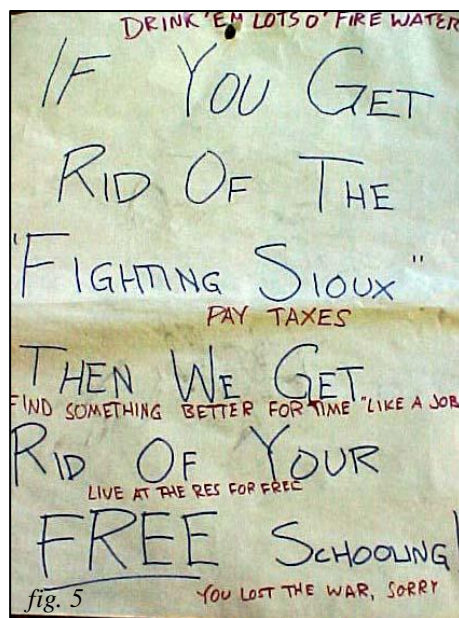 DRINK 'EM LOTS O' FIRE WATER
IF YOU GET
RID OF THE
"FIGHTING SIOUX"
PAY TAXES
THEN WE GET
FIND SOMETHING BETTER FOR TIME "LIKE A JOB
RID OF YOUR
LIVE AT THE RES FOR FREE
FREE SCHOOLING!
YOU LOST THE WAR, SORRY
fig. 5